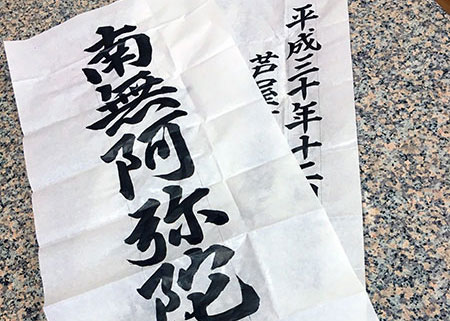 南無阿弥陀
平成三十年十二
芦屋